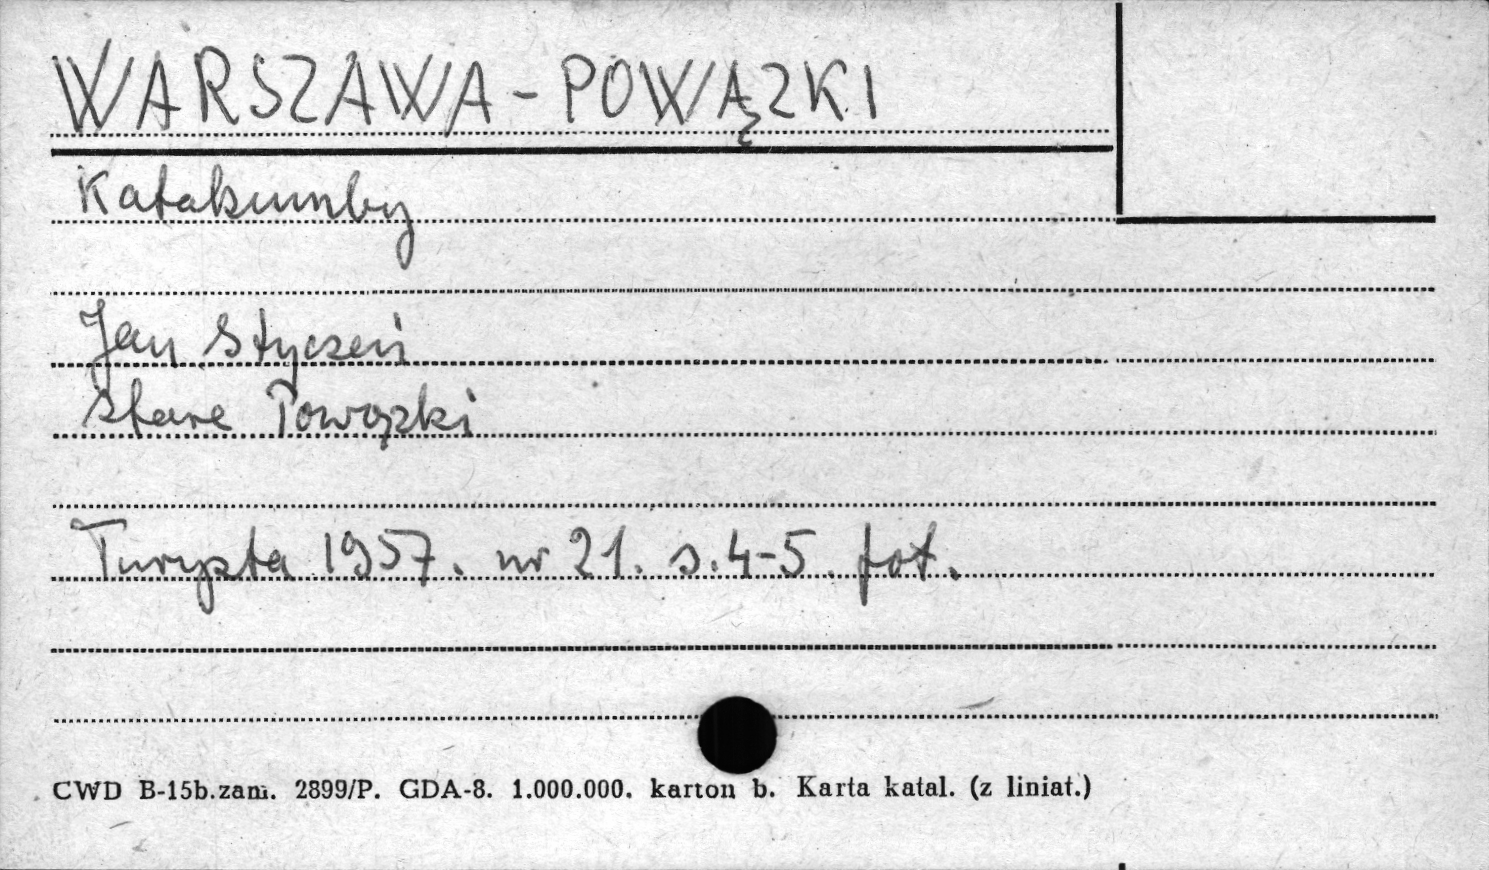 WARSZAWA - POWĄZKI
Katakumby
Jan Styczeń
Stare Powązki
Turysta 1957. nr 21. s. 4-5. fot.
CWD B-15b.zam. 2899/P. GDA-8. 1.000.000. karton b. Karta katal. (z liniat.)